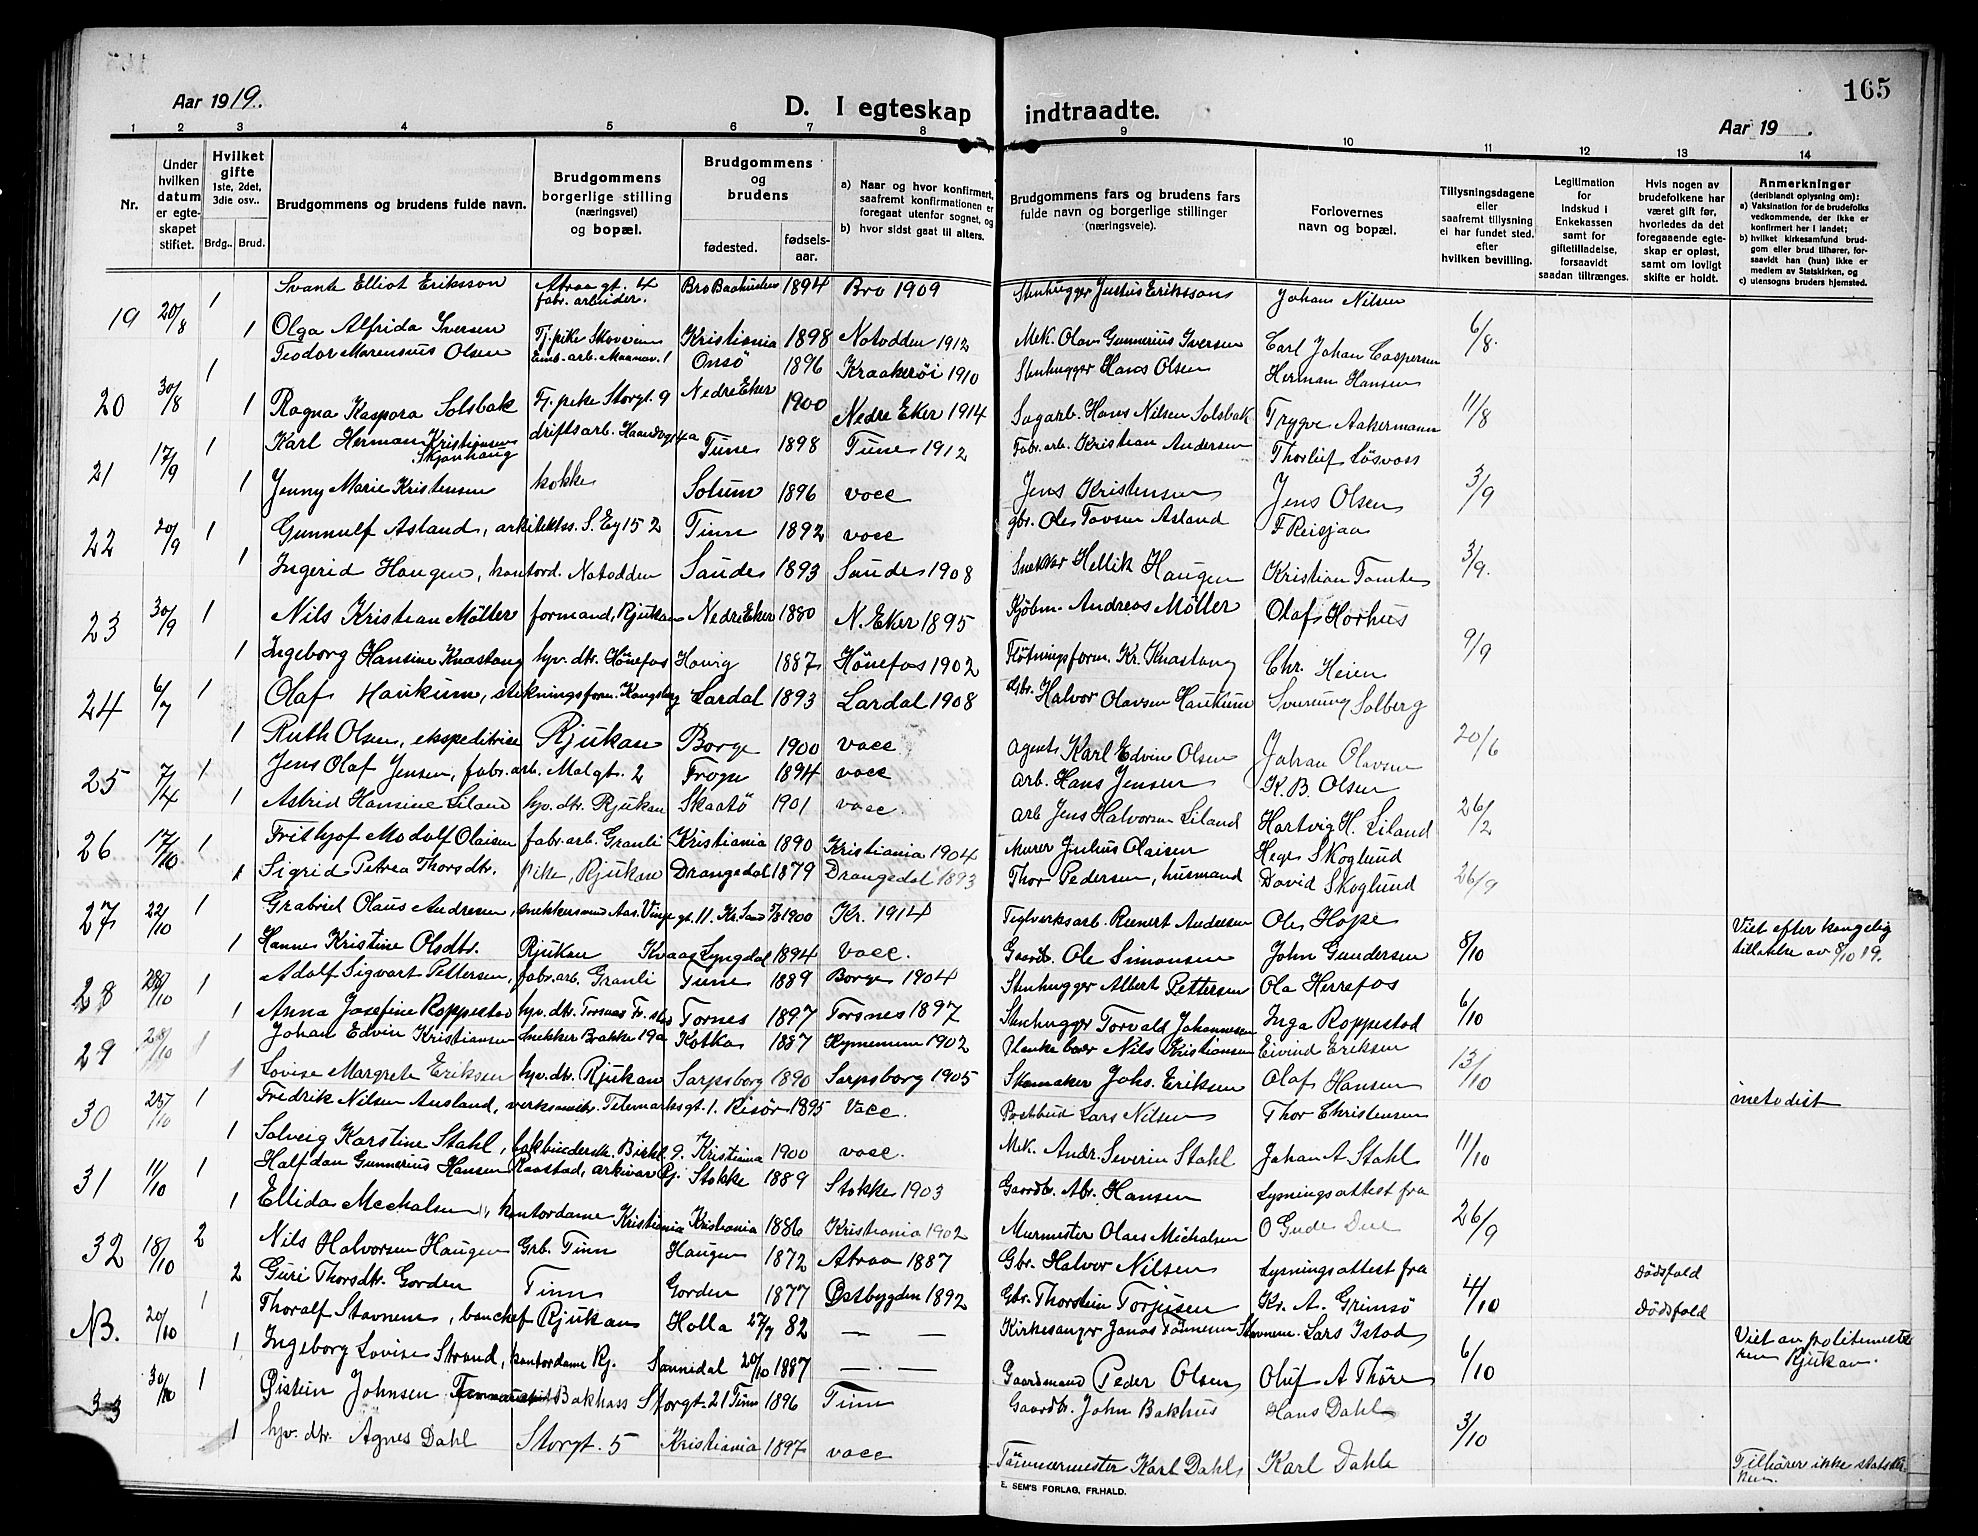 165
Aar 1919.
D. I egteskap indtraadte.
Aar 19 .
1 2 3 4 5 6 7 8 9 10 11 12 13 14
Nr.
Under hvilken datum er egteskapet stiftet.
Hvilket gifte 1ste, 2det, 3die osv..
Brdg.. Brud.
Brudgommens og brudens fulde navn.
Brudgommens borgerlige stilling (næringsvei) og bopæl.
Brudgommens og brudens
fødested. fødselsaar.
a) Naar og hvor konfirmert, saafremt konfirmationen er foregaat utenfor sognet, og
b) hvor sidst gaat til alters.
Brudgommens fars og brudens fars fulde navn og borgerlige stillinger (næringsveie).
Forlovernes navn og bopæl.
Tillysningsdagene eller saafremt tillysning ei har fundet sted. efter hvilken bevilling.
Legitimation for Indskud i Enkekassen samt for giftetilladelse, forsaavidt saadan tiltrænges.
Hvis nogen av brudefolkene har været gift før, hvorledes da det foregaaende egteskap er opløst, samt om lovligt skifte er holdt.
Anmerkninger (deriblandt oplysning om):
a) Vaksination for de brudefolks vedkommende, der ikke er konfirmert her i landet;
b) hvilket kirkesamfund brudgom eller brud tilhører, forsaavidt han (hun) ikke er medlem av Statskirken, og
c) utensogns bruders hjemsted.
19 20/8 1 Svante Elliot Eriksson Atraa gt. 4 fabr. arbeider. Bro Baahuslen 1894 Bro 1909 Stenhugger Justus Erikssons Johans Nilsen
1 Olga Alfrida Iversen Tj. pike Kristiania 1898 Notodden 1912 Mek. Olav Gunnerius Iversen Carl Johan Caspersen 6/8.
20 30/8 1 Teodor Marensius Olsen Emb. arb. Maanav. 1 Onsö 1896 Kraakeröi 1910 Stenhugger Hans Olsen Herman Hansen
1 Ragna Kaspora Solsbak Tj. pike Storgt. 9 Nedre Eker 1900 Nedre Eker 1914 Sagarb. Hans Nilsen Solsbak Trygve Aakermann 11/8
21 17/9 1 Karl Herman Kristiansen Skjanhaug driftsarb. 4a Tune 1898 Tune 1912 Fabr. arb. Kristian Andersen Thorleif Løsvoss
1 Jenny Marie Kristensen kokke Solum 1896 vacc Jens Kristensen Jens Olsen 3/9
22 20/9 1 Gunnulf Asland, arkitektss. S. Ey 15 2 Tinn 1892 vacc gbr. Ole Tovsen Asland F Reisjaa
1 Ingerid Haugen, kontord. Notodden Saude 1893 Saude 1908 Snekker Hellik Haugen Kristian Tomte 3/9.
23 30/9 1 Nils Kristian Möller formand, Rjukan Nedre Eker 1880 N. Eker 1895 Kjöbm. Andreas Möller Olaf Horhus
1 Ingeborg Hansine Knastang hjv. dtr. Hönefos Hovig 1887 Hönefos 1902 Flötningsform. Kr. Knastang Chr. Heien 9/9
24 6/7 1 Olaf Haukum, stikningsform. Kongsberg Lardal 1893 Lardal 1908 Gbr. Halvor Olavsen Haukum Sverung Solberg
1 Ruth Olsen, ekspeditrise Rjukan Borge 1900 vacc Agent Karl Edvin Olsen Johan Olavsen 20/6
25 7/4 1 Jens Olaf Jensen, fabr. arb. Malgt. 2 Frogn 1894 vacc arb. Hans Jensen K. B. Olsen
1 Astrid Hansine Liland hjv. dtr. Rjukan Skaatö 1901 vacc. arb Jens Halvorsen Liland Hartvig H. Liland 26/2
26 17/10 1 Frithjof Modolf Olaisen fabr. arb. Granli Kristiania 1890 Kristiania 1904 Murer Julius Olaisen Hege Skoglund
1 Sigrid Petrea Thorsdtr. pike, Rjukan Drangedal 1879 Drangedal 1893 Thor Pedersen, husmand David Skoglund 26/9
27 22/10 1 Grabriel Olaus Andresen, snekkersvend Aas. Vinje gt. 11. Kr. Sand 7/8 1900 Kr. 1914 Teglverksarb. Reinert Andersen Ole Hope
1 Hanne Kristine Olsdtr. Rjukan Kvaas Lyngdal 1894 Vacc. Gaardb. Ole Simonsen John Gundersen 8/10 Viet efter kongelig tillatelse av 8/10 19.
28 28/10 1 Adolf Sigvart Pettersen, fabr. arb. Granli Tune 1889 Borge 1904 Stenhugger Albert Pettersen Ola Herrefos
1 Anna Josefine Roppestad hjv. dtr. Torsnes Fr. stad Tornes 1897 Torsnes 1897 Stenhugger Torvald Johannesen Inga Roppestad 6/10
29 28/10 1 Johan Edvin Kristiansen snekker Brakke 19a Kotka 1887 Kymemum 1902 Planke bær Nils Kristiansen Eivind Eriksen
1 Lovise Margrete Eriksen hjv. dtr. Rjukan Sarpsborg 1890 Sarpsborg 1905 Skomaker Johs. Eriksen Olaf Hansen 13/10
30 25/10 1 Fredrik Nilsen Ausland, Telemarksgt. 1. Risör 1895 Vacc. Postbud Lars Nilsen Thor Christensen metodist
1 Solveig Karstine Stahl, bokbinderske. Birkl. 9. Kristiania 1900 vacc. Mek. Andr. Severin Stahl Johan A Stahl 11/10
31 11/10 1 Halfdan Gunnerius Hansen Raastad, arkivar Rj. Stokke 1889 Stokke 1903 Gaardbr. Abr. Hansen Lysningsattest fra
1 Ellida Mechalsen, kontordame Kristiania Kristiania 1886 Kristiania 1902 Murmester Olaus Michalsen O Gude Due 26/9
32 18/10 2 Nils Halvorsen Haugen Grb. Tinn Haugen 1872 Atraa 1887 Gbr. Halvor Nilsen Lysningsattest fra Dödsfald
2 Guri Thorsdtr. Gorden Tinn Gorden 1877 Østbygden 1892 Gbr. Thorstein Torjusen Kr. A. Grimsö 4/10 Dödsfald
NB. 20/10 1 Thoralf Stavnem, bankchef Rjukan Holla 27/7 82 — — Kirkesanger Jonas Tönnesen Stavnem. Lars Istad
1 Ingeborg Lovise Strand, kontordame Rj. Sannidal 20/10 1887 — — Gaardmand Peder Olsen Oluf A Thöre 6/10 Viet av politimesteren Rjukan.
33 30/10 1 Øistein Johnsen Bakhuss Storgt. 21 Tinn 1896 Tinn Gaardbr. John Bakhus Hans Dahl
1 hjv. dtr. Agnes Dahl Storgt. 5 Kristiania 1897 vacc Tömmermester Karl Dahl Karl Dahle 3/10 Tilhörer ikke statskirken.
E. SEM'S FORLAG, FR.HALD.